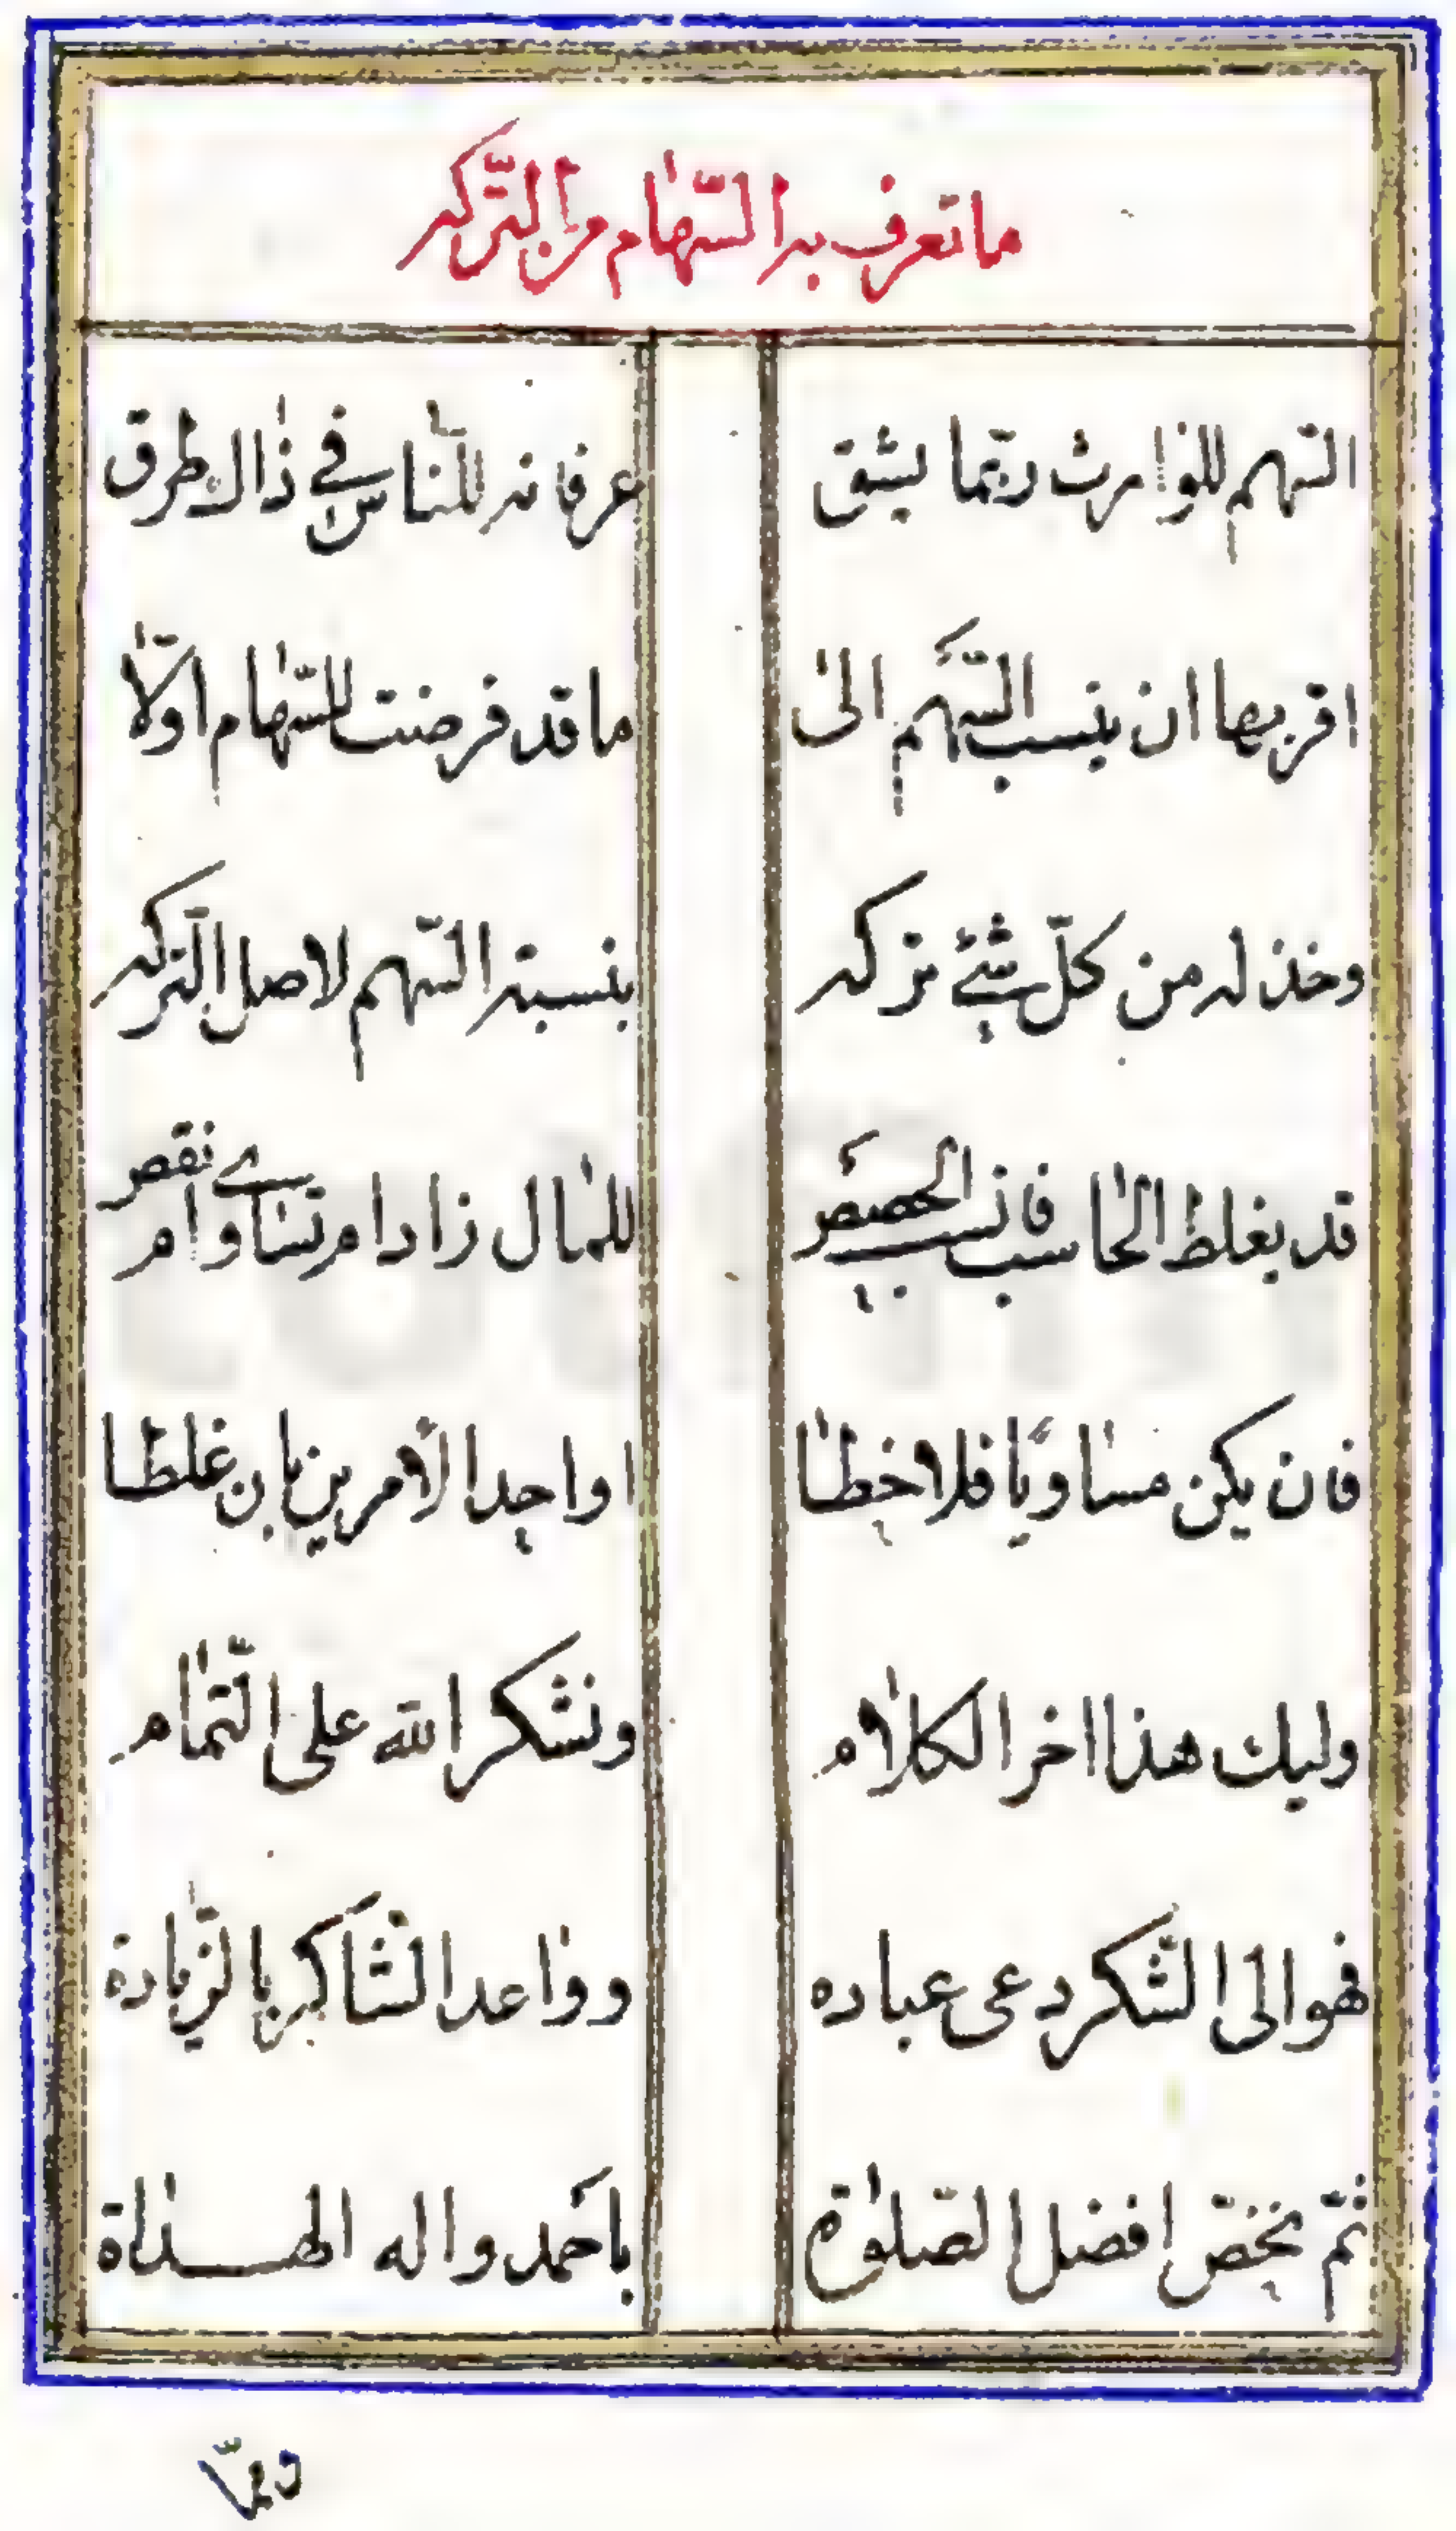 ما تعرف به السّهام من التّركه
السّهم للوارث ربّما يشق عرفانه للنّاس في ذاك طرق
اقربها ان ينسب السّهم الى ما قد فرضت للسّهام اوّلا
وخذ له من كلّ شيء تركه بنسبة السّهم لاصل التّركه
قد يغلط الحاسب فانسب الحصص للمال زادام تساوام نقص
فان يكن مساويًا فلا خطا او احد الأمرين بان غلطا
وليك هذا اخر الكلام ونشكر الله على التّمام
فهو الى الشّكر دعى عباده وواعد الشّاكر بالزّيادة
ثمّ نخصّ افضل الصّلوة باحمد واله الهداة